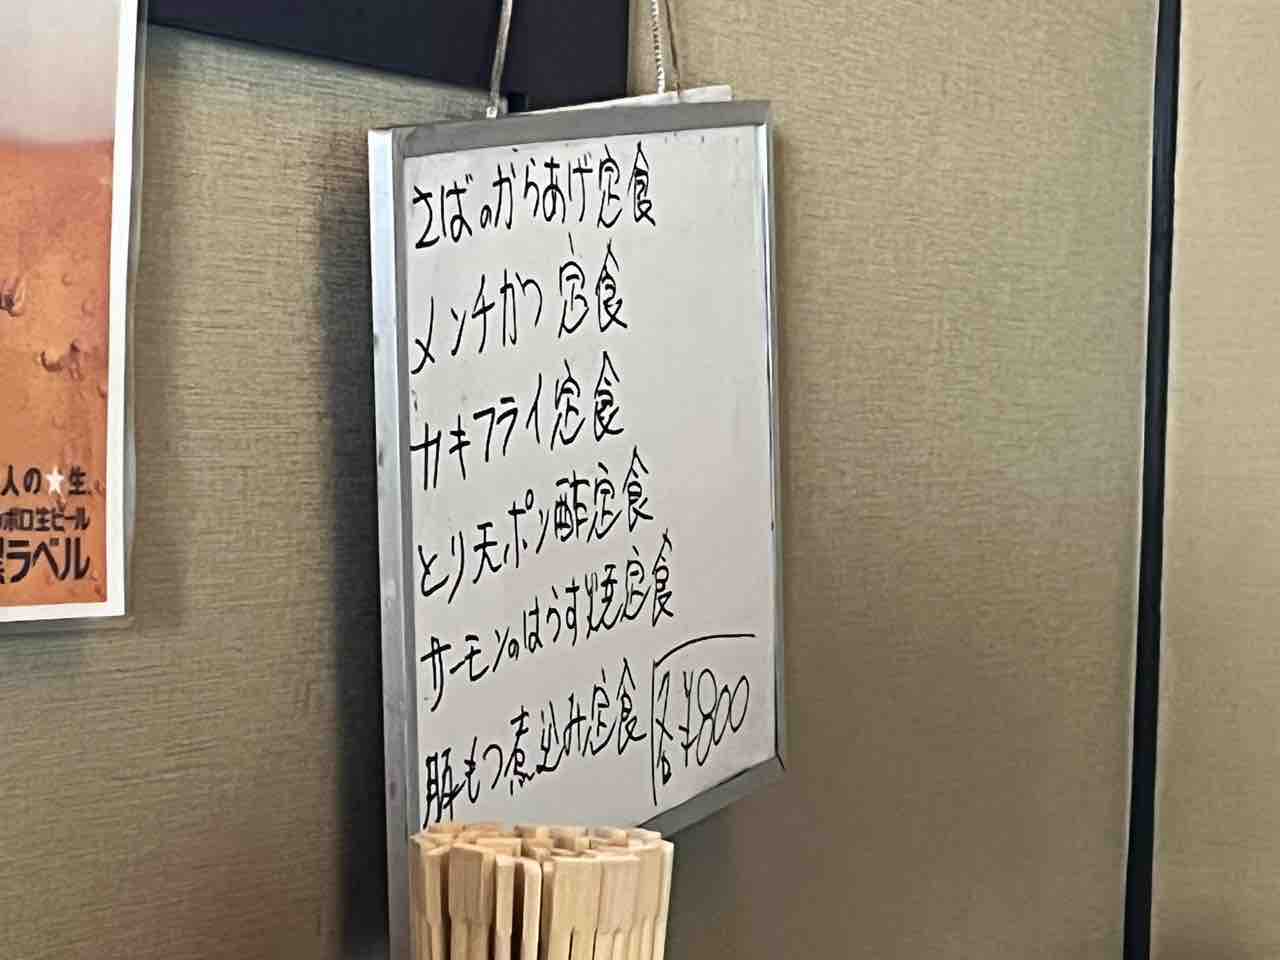 さばのからあげ定食
メンチかつ定食
カキフライ定食
とり天ポン酢定食
サーモンのはらす焼定食
豚もつ煮込み定食
各¥800
人の★生、
ポロ生ビール
ラベル